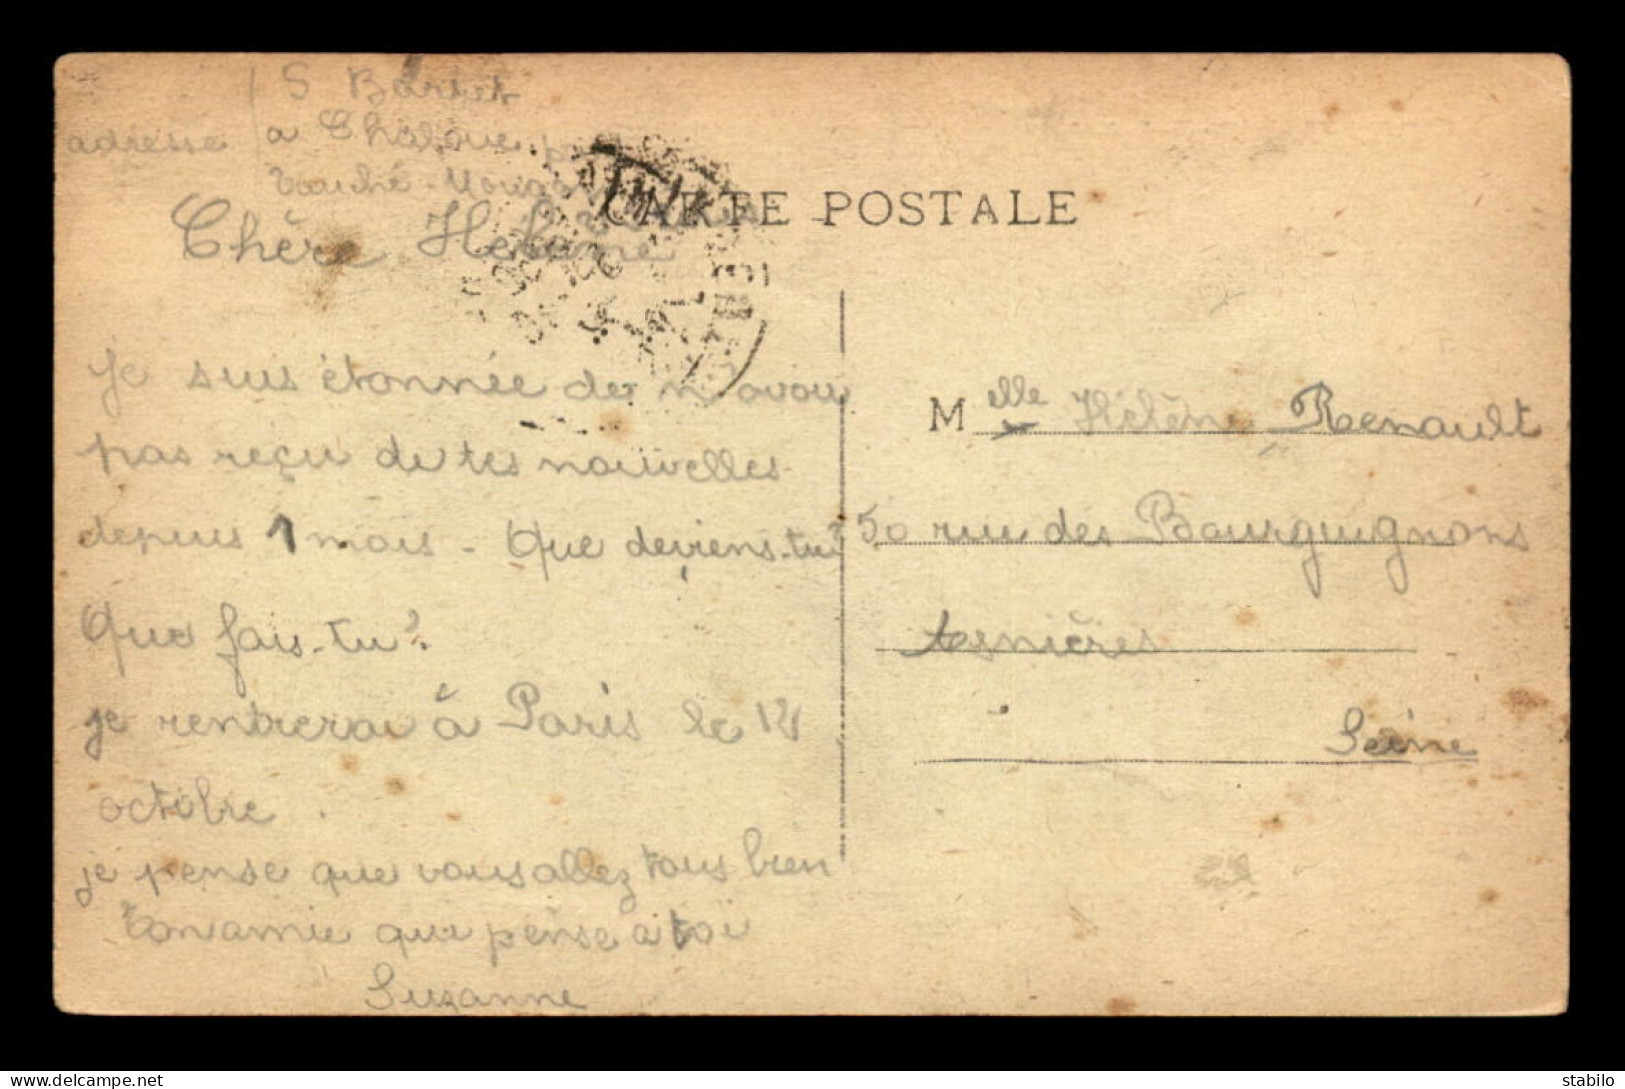 S
adresse a
CARTE POSTALE
Chère Hélène
Je suis étonnée de n'avoir
pas reçu de tes nouvelles
depuis 1 mois - Que deviens-tu?
Que fais-tu?
je rentrerai à Paris le 12
octobre.
je pense que vous allez tous bien
ton amie qui pense à toi
Suzanne
Melle Hélène Renault
50 rue des Bourguignons
Asnières
Seine
stabilo